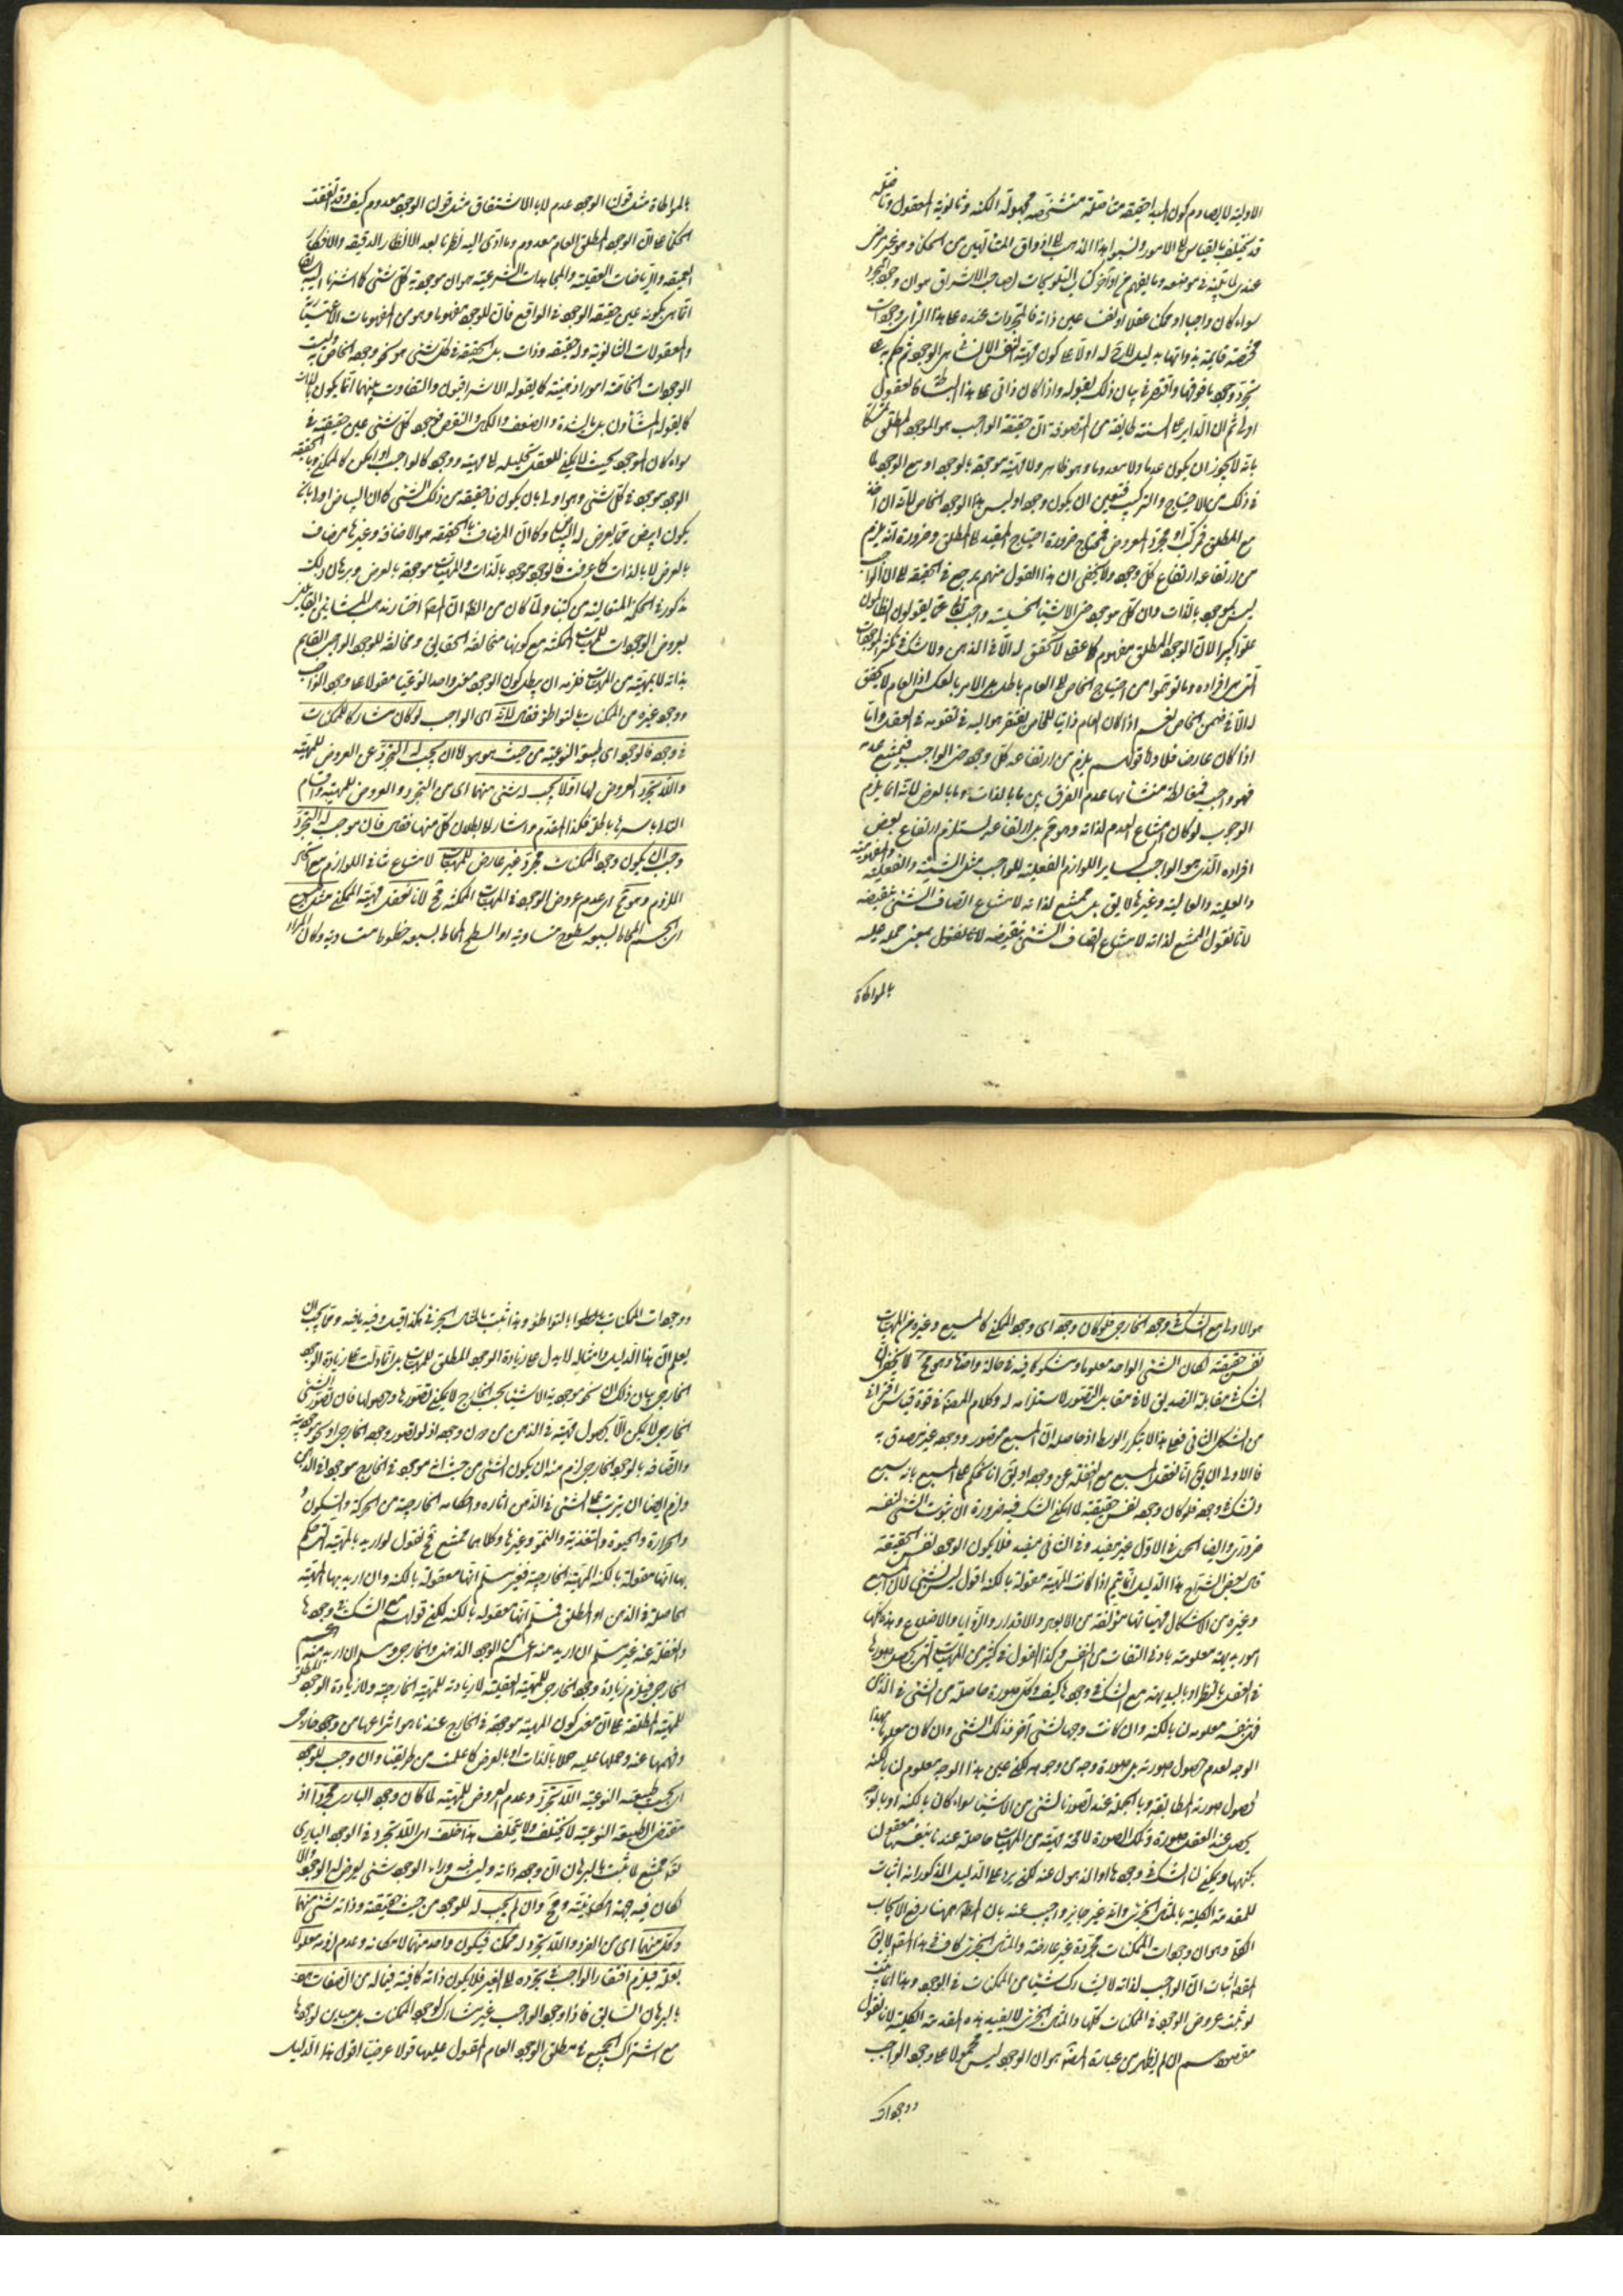 الاولية لا يصادم كون المبدا حقيقة متاصلة متشخصة مجهولة الكنه وثانوية المعقول
قد يختلف بالقياس الى الامور ونسبوا هذا المذهب الى اذواق المتألهين من الحكماء وهو غير مرضى
عندى لما بينته فى موضعه وما يفهم من اواخر كتاب التلويحات لصاحب الاشراق هو ان وجود المجرد
سواء كان واجبا او ممكنا عقلا او نفسا عين ذاته فالمجردات عنده على هذا الراى وجودات
محضة قائمة بذواتها
بتجرد وجود ما فوقها واقتصر فى بيان ذلك بقوله واذا كان ذاتى على هذا البساطة فالعقول
اولى ثم ان الدائر على السنة طائفة من المتصوفة ان حقيقة الواجب هو الوجود المطلق
بانه لا يجوز ان يكون عدما ولا معدوما وهو ظاهر ولا مهية موجودة بالوجود او مع الوجود لما
فى ذلك من الاحتياج والتركيب فتعين ان يكون وجودا وليس هذا الوجود الخاص لانه ان اخذ
مع المطلق فمركب او مجرد المعروض فمحتاج ضرورة احتياج المقيد الى المطلق وضرورة انه يلزم
من ارتفاعه ارتفاع كل وجود ولا يخفى ان هذا القول منهم يرجع فى الحقيقة الى ان الواجب
ليس بموجود بالذات وان كل موجود من الاشياء الخسيسة واجب تعالى عما يقولون الظالمون
علوا كبيرا لان الوجود المطلق مفهوم كلى لا تحقق له الا فى الذهن ولا شك فى تكثر الموجودات
التى هى افراده وما توهموا من احتياج الخاص الى العام باطل بل الامر بالعكس اذ العام لا تحقق
له الا فى ضمن الخاص نعم اذا كان العام ذاتيا للخاص يفتقر هو اليه فى تقومه فى العقل واما
اذا كان عارضا فلا واما قولهم يلزم من ارتفاعه كل وجود حتى الواجب فيمتنع عدمه
فهو واجب فمغالطة منشأها عدم الفرق بين ما بالذات وما بالعرض لانه انما يلزم
الوجوب لو كان امتناع العدم لذاته وهو مم بل ارتفاعه يستلزم ارتفاع بعض
افراده الذى هو الواجب كساير اللوازم الفعلية للواجب مثل الشيئية والمفهومية
والعلية والعالية وغيرها لا يق بل يمتنع لذاته لامتناع اتصاف الشىء بنقيضه
لانا نقول الممتنع لذاته لامتناع اتصاف الشىء بنقيضه لانا نقول بمعنى حمله عليه
بالمواطاة
بالمواطاة مثل قولنا الوجود عدم لا بالاشتقاق مثل قولنا الوجود معدوم كيف وقد اتفقت
الحكماء على ان الوجود المطلق العام معدوم وما ادى اليه نظرنا بعد الانظار الدقيقة والافكار
العميقة والرياضات العقلية والمجاهدات الشرعية هو ان موجودية كل شىء كما اشرنا اليه
انما هى بكونه عين حقيقة الوجود فى الواقع فان للوجود مفهوما وهو من المفهومات الاعتبارية
والمعقولات الثانوية وله حقيقة وذات بل الحقيقة فى كل شىء هو نحو وجوده الخاص به وليست
الوجودات الخاصة امورا ذهنية كما يقوله الاشراقيون والتفاوت بينهما انما يكون بالذات
كما يقوله المشاؤن بل بالشدة والضعف والكمال والنقص فوجود كل شىء عين حقيقته
سواء كان الموجود بحيث لا يمكن للعقل تحليله الى مهية ووجود كالواجب او امكن كالممكن وبالحقيقة
الوجود موجود فى كل شىء وهو اولى بان يكون ذا حقيقة من ذلك الشىء كما ان البياض اولى بان
يكون ابيض مما يعرض له البياض وكما ان المضاف بالحقيقة هو الاضافة وغيرها مضاف
بالعرض لا بالذات كما عرفت فالوجود موجود بالذات والمهيات موجودة بالعرض وبرهان ذلك
مذكور فى الحكمة المتعالية من كتبنا ولما كان من الظاهر ان المصنف اختار مذهب المشائين القائلين
بعروض الوجودات للمهيات الممكنة مع كونها متخالفة الحقايق ومخالفة للوجود الواجب القايم
بذاته لا بمهية من المهيات فلزمه ان يبطل كون الوجود معنى واحدا نوعيا مقولا على وجود الواجب
ووجود غيره من الممكنات بالتواطؤ فقال لانه اى الواجب لو كان مشاركا للممكنات
فى وجوده فالوجود اى طبيعته النوعية من حيث هو هو اما ان يجب له التجرد عن العروض للمهية
واللاتجرد العروض لها او لا يجب له شىء منهما اى من التجرد والعروض للمهية واقسام
التالى باسرها باطلة فكذا المقدم واشار الى بطلان كل منها فقال فان وجب له التجرد
وجب ان يكون وجود الممكنات مجردا غير عارض للمهيات لامتناع تنافى اللوازم مع اتحاد
الملزوم وهو مح اى عدم عروض الوجود فى المهيات الممكنة مح لانا نتعقل مهية الممكن مثل المسبع
اى الجسم المحاط بسبعة سطوح متساوية او السطح المحاط بسبعة خطوط متساوية وكان المراد
هو الاول مع الشك فى وجوده الخارجى فلو كان وجوده اى وجود الممكن كالمسبع وغيره من المهيات
نفس حقيقته لكان الشىء الواحد معلوما ومشكوكا فيه فى حالة واحدة وهو مح لا يخفى ان
الشك فى مقابلة التصديق لا فى مقابل التصور لاستلزامه له وكلام المصنف فى قوة قياس اقترانى
من الشكل الثانى فعلى هذا لا يتكرر الوسط اذ حاصله ان المسبع متصور ووجوده غير مصدق به
فالاولى ان يق انا نعقل المسبع مع الغفلة عن وجوده او يق انا نحكم على المسبع بانه مسبع
ونشك فى وجوده فلو كان وجوده نفس حقيقته لما امكن الشك فيه ضرورة ان ثبوت الشىء لنفسه
ضرورى وايضا الحمل فى الاول غير مفيد وفى الثانى مفيد فلا يكون الوجود نفس الحقيقة
قال بعض الشراح هذا الدليل انما يتم اذا كانت المهية معقولة بالكنه اقول ليس بشىء لان المسبع
وغيره من الاشكال مهياتها مؤلفة من الابعاد والاقدار والزوايا والاضلاع وهذه كلها
امور بديهية معلومة بادنى التفات من النفس وكذا القول فى كثير من المهيات التى يحصل صورها
فى العقل بالنظر او بالبديهة مع الشك فى وجودها كيف وكل صورة حاصلة من الشىء فى الذهن
فهى بنفسه معلومة لنا بالكنه وان كانت وجها لشىء آخر فذلك الشىء وان كان معلوما بهذا
الوجه لعدم حصول صورته بل صورة وجه من وجوهه لكن عين هذا الوجه معلوم لنا بالكنه
لحصول صورته المطابقة وبالجملة عند تصورنا لشىء من الاشياء سواء كان بالكنه او بالوجه
يحصل عند العقل صورة وتلك الصورة لا محة مهية من المهيات حاصلة عندنا بنفسها معقولة لنا
بكنهها ويمكن لنا الشك فى وجودها او الذهول عنه لكن يرد على الدليل المذكور انه اثبات
للمقدمة الكلية بالمثال الجزئى وانه غير جايز واجيب عنه بان المط ههنا رفع الايجاب
الكلى وهو ان وجودات الممكنات مجردة غير عارضة والمثال الجزئى كاف فى هذا المقام لا يق
المقصود اثبات ان الواجب لذاته لا يشارك شيئا من الممكنات فى الوجود وهذا انما يثبت
لو ثبت عروض الوجود فى الممكنات كلها والمثال الجزئى لا يفيد هذه المقدمة الكلية لانا نقول
مقصودهم ان لم يظهر من عبارة المصنف هو ان الوجود ليس محمولا على وجود الواجب
ووجودات
ووجودات الممكنات بالتواطؤ وهذا يثبت بالمثال الجزئى هكذا قيل وفيه ما فيه ومما يجب ان
يعلم ان هذا الدليل وامثاله لا يدل على زيادة الوجود المطلق للمهيات بل انما دلت على زيادة الوجود
الخارجى بيان ذلك ان نحو موجودية الاشياء بحسب الخارج لا يمكن تصورها وحصولها فان تصور الشىء
الخارجى لا يمكن الا بحصول مهيته فى الذهن من دون وجوده اذ لو تصور وجوده الخارجى او نحو موجوديته
واتصافه بالوجود الخارجى لزم منه ان يكون الشىء من حيث انه موجود فى الخارج موجودا فى الذهن
ولزم ايضا ان يترتب على الشىء فى الذهن آثاره واحكامه الخارجية من الحركة والسكون
والحرارة والحيوة والتغذية والنمو وغيرها وكلاهما ممتنع فح نقول لو اريد بالمهية التى حكم
بها انها معقولة بالكنه المهية الخارجية فغير مسلم انها معقولة بالكنه وان اريد بها المهية
الحاصلة فى الذهن او المطلق فمسلم انها معقولة بالكنه لكن قولهم مع الشك فى وجودها
والغفلة عنه غير مسلم ان اريد منه اعم من الوجود الذهنى والخارجى ومسلم ان اريد منه
الخارجى فيلزم زيادة وجود الخارجى للمهية العقلية لا زيادته للمهية الخارجية ولا زيادة الوجود المطلق
للمهية المطلقة على ان معنى كون المهية موجودة فى الخارج عندنا هو انتزاعها من وجود خارجى
وفهمها عنه وحملها عليه حملا بالذات او بالعرض كما علمت من طريقتنا وان وجب للوجود
اى بحسب طبيعته النوعية اللاتجرد وعدم العروض للمهية لما كان وجود البارى مجردا اذ
مقتضى الطبيعة النوعية لا يختلف ولا يتخلف هذا خلف اى اللاتجرد فى الوجود البارى
تعالى ممتنع لما ثبت بالبرهان ان وجوده ذاته وليس فيه وراء الوجود شىء يعرض له الوجود والا
لكان فيه جهة امكانية وهو مح وان لم يجب له للوجود من حيث حقيقته وذاته شىء منهما
وكل منهما اى من التجرد واللاتجرد له ممكن فيكون واحد منهما لامكانه وعدم لزومه معلولا
بعلة فيلزم افتقار الواجب فى تجرده الى الغير فلا يكون ذاته كافية فيما له من الصفات هف
بالبرهان السابق فاذا وجود الواجب غير مشارك لوجود الممكنات بل مباين لوجودها
مع اشتراك الجميع فى مطلق الوجود العام المقول عليها قولا عرضيا اقول هذا الدليل